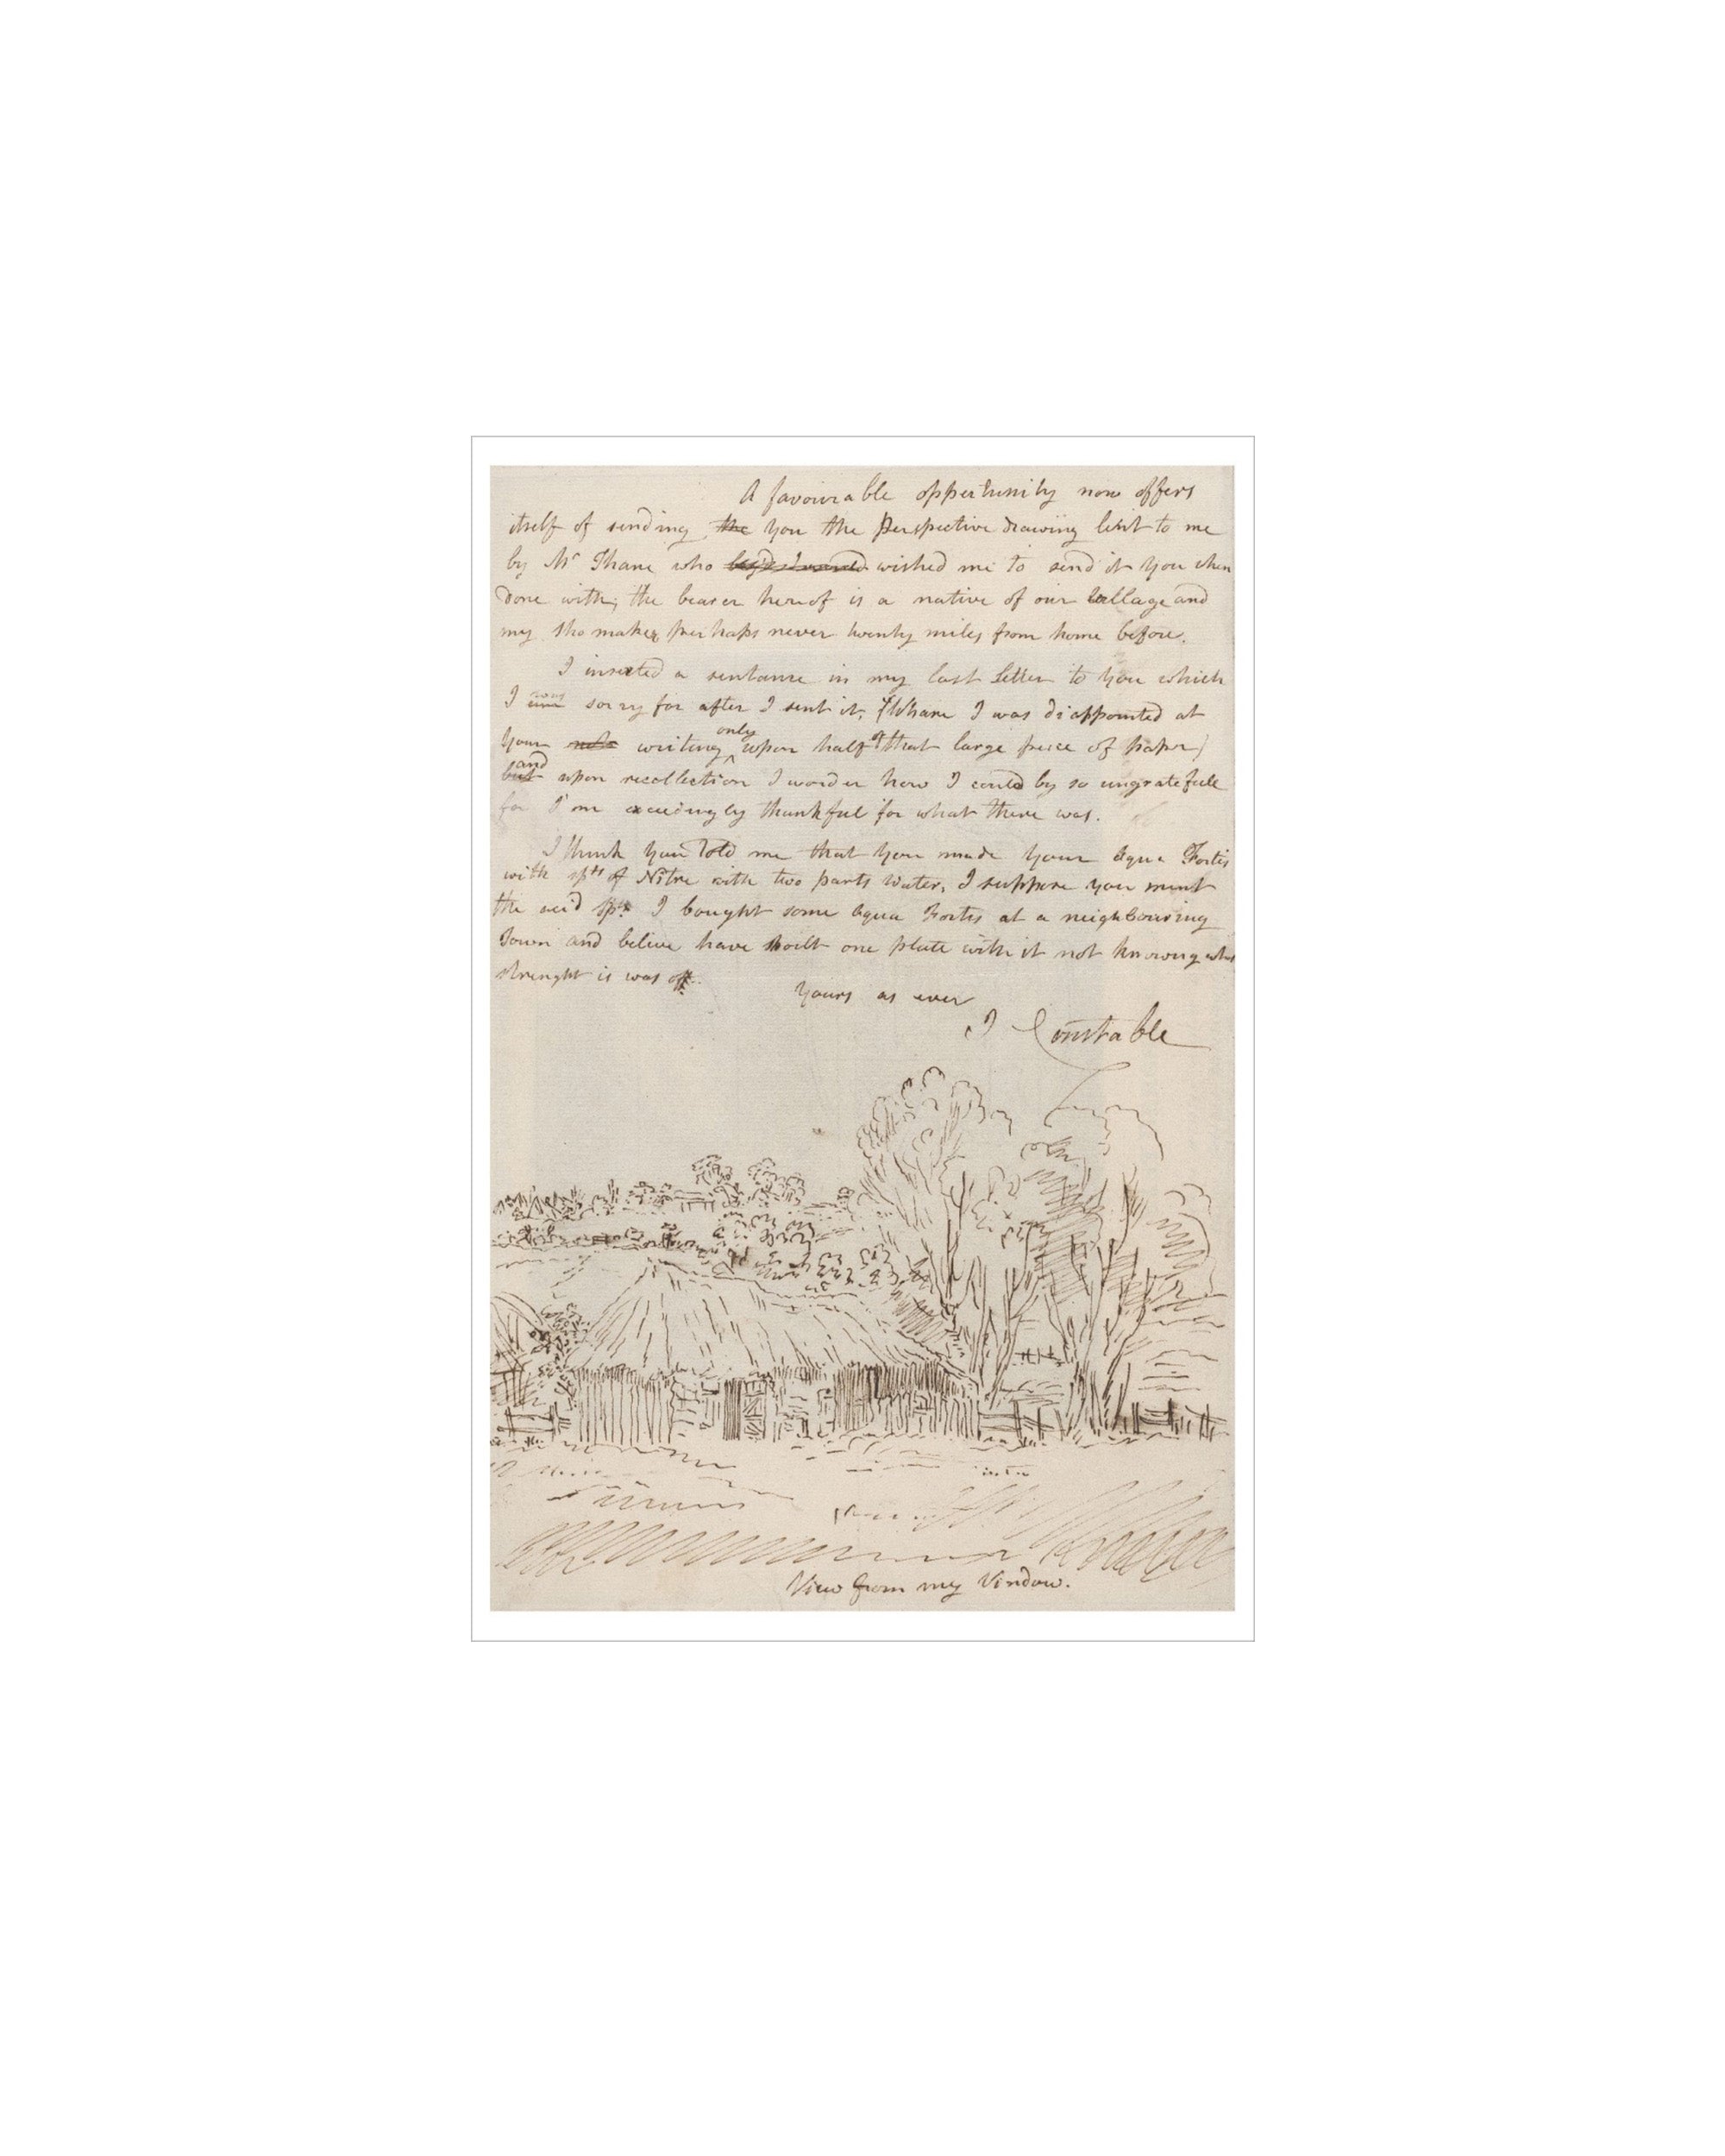 A favourable oppertunity now offers
itself of sending the you the Perspective drawing lent to me
by Mr Thane who wished me to send it you when
done with; the bearer hereof is a native of our village and
my shomaker perhaps never twenty miles from home before.
I inserted a sentance in my last Letter to you which
I was sorry for after I sent it, (Whare I was disappointed at
your writing only upon half that large peice of paper)
and upon recollection I wonder how I could by so ungratefull
for I'm exceedingly thankful for what there was.
I think you told me that you made your Aqua Fortis
with spts of Nitre with two parts water, I suppose you ment
the acid spts. I bought some Aqua Fortis at a neighbouring
Town and belive have spoilt one plate with it not knowing what
strenght is was of.
Yours as ever
J Constable
View from my Window.